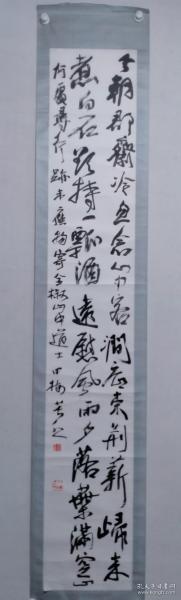 今朝郡齋冷忽念山中客澗底束荆薪歸来
煮白石欲持一瓢酒遠慰風雨夕落葉滿空山
何處尋行跡韋應物寄全椒山中道士